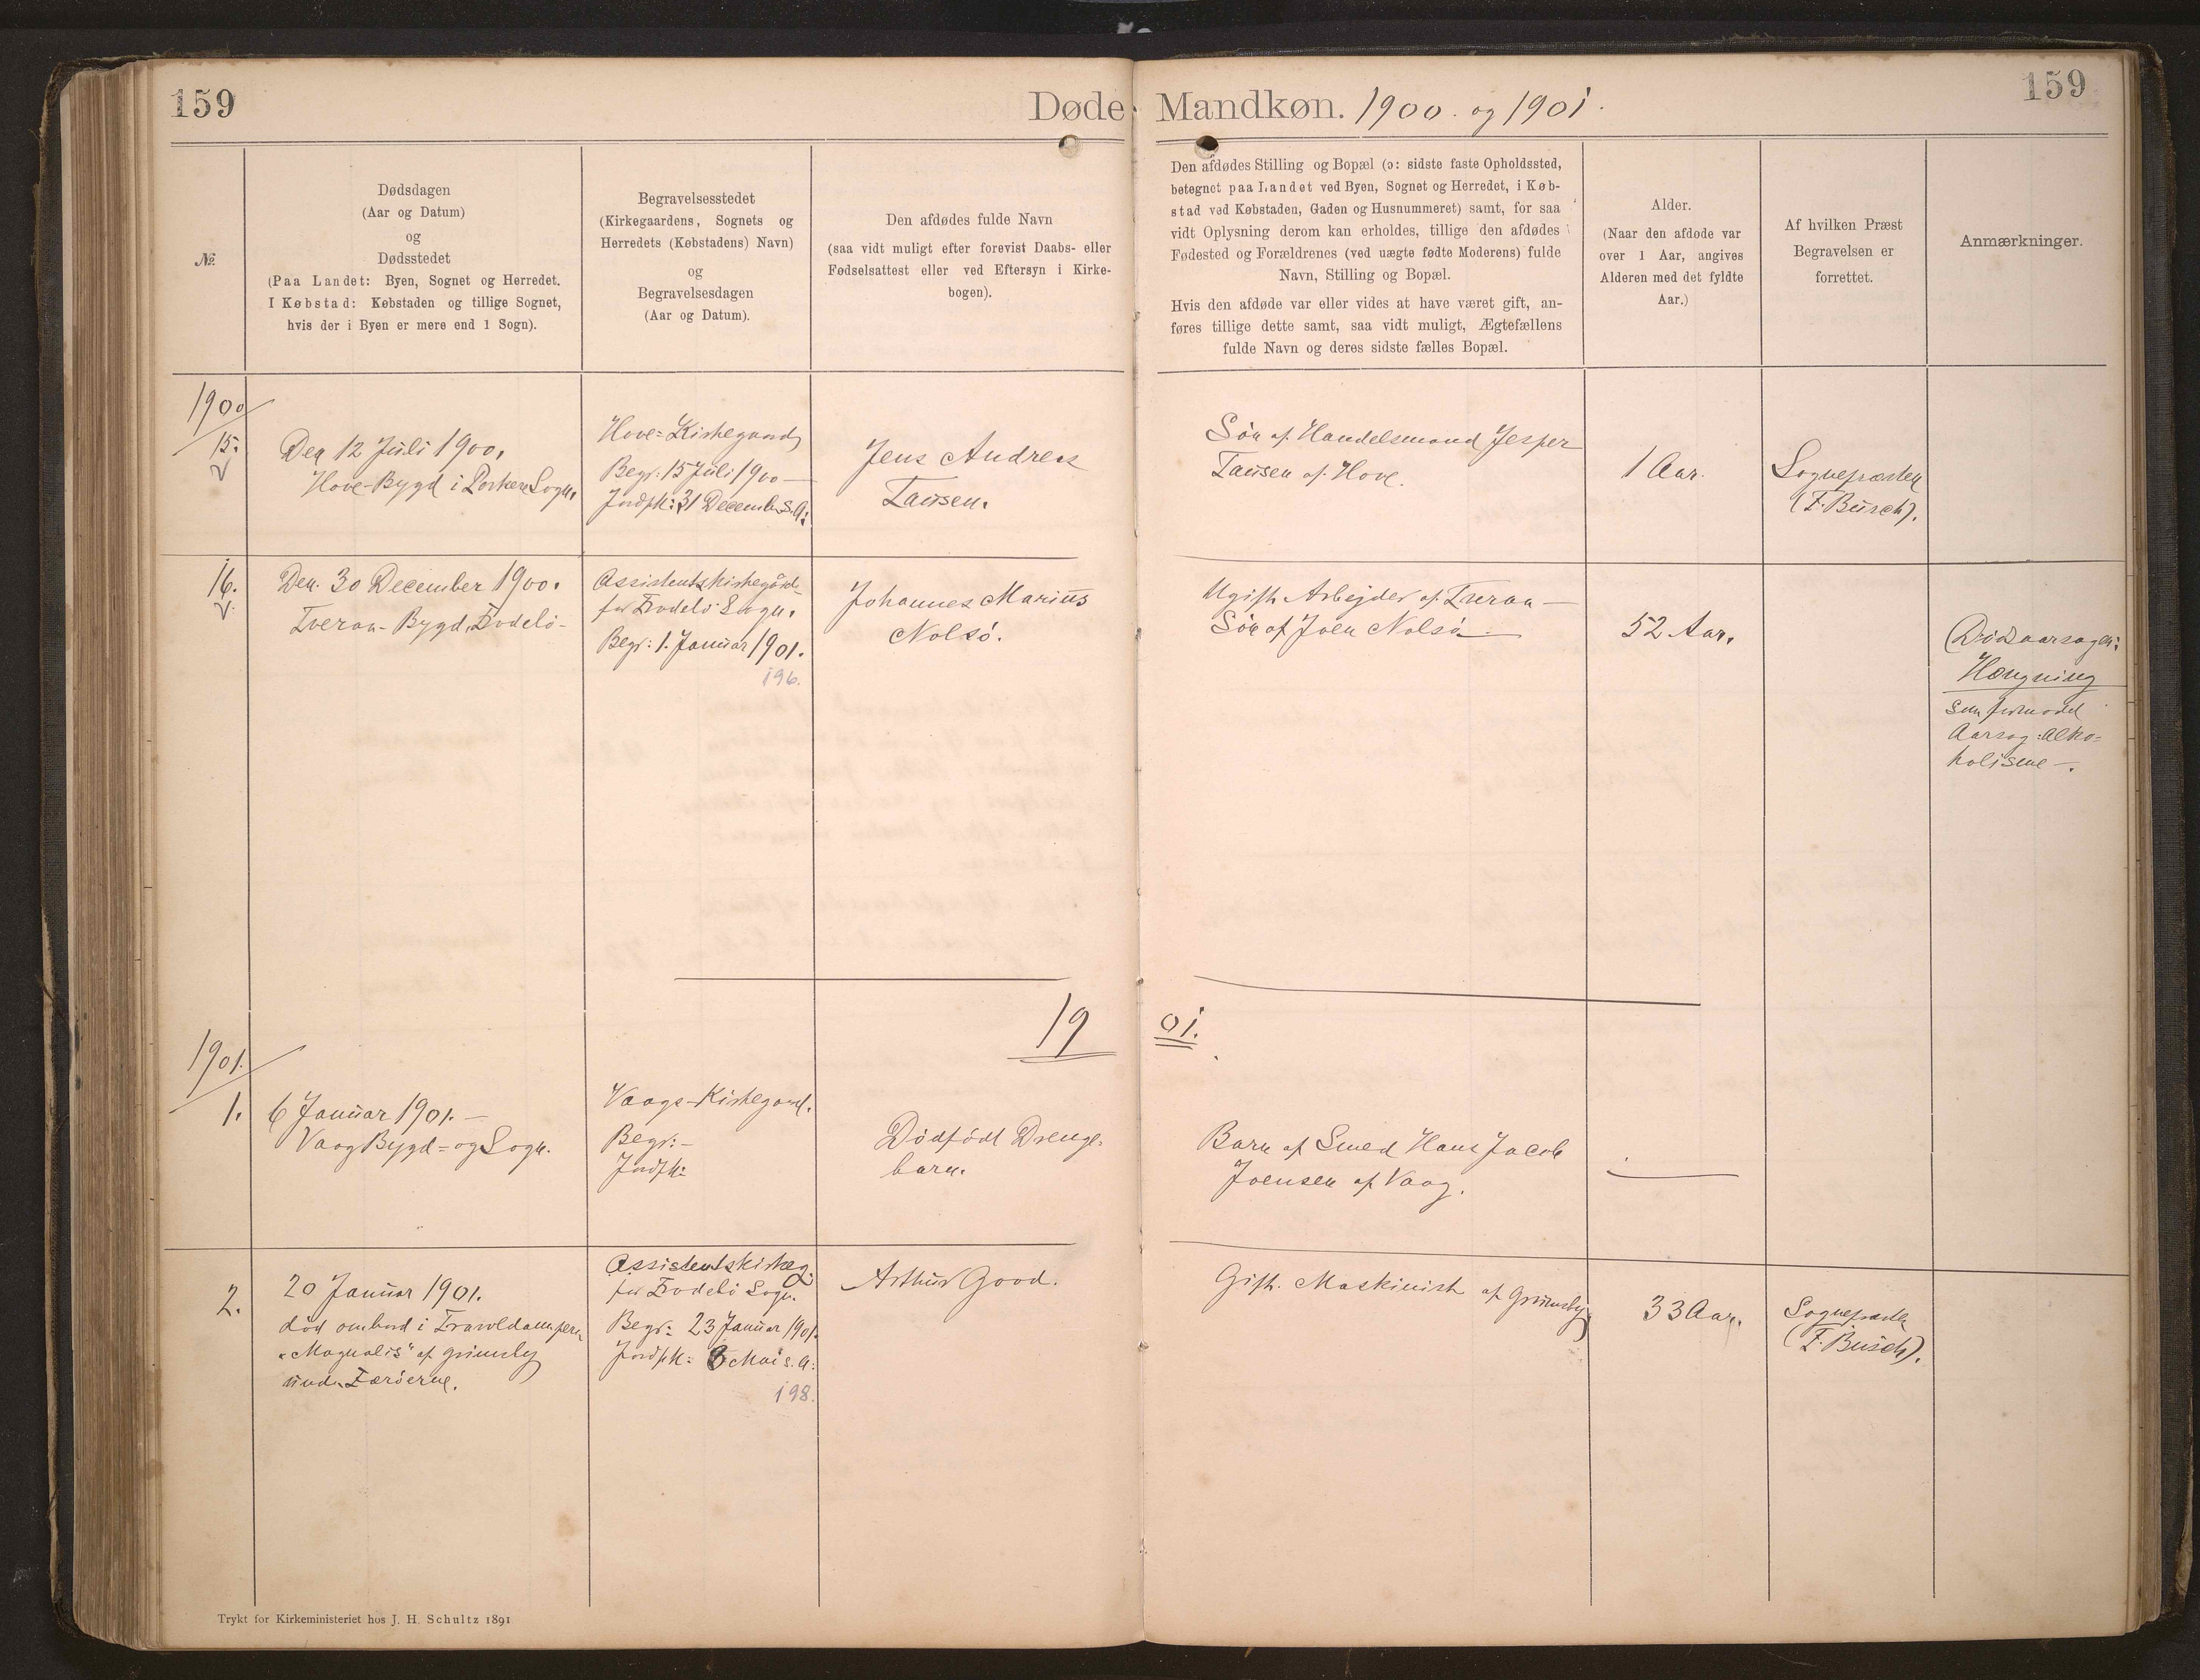 159
Døde
Mandkøn. 1900. og 1901.
159
№
Dødsdagen
(Aar og Datum)
og
Dødsstedet
(Paa Landet: Byen, Sognet og Herredet.
I Købstad: Købstaden og tillige Sognet,
hvis der i Byen er mere end 1 Sogn).
Begravelsesstedet
(Kirkegaardens, Sognets og
Herredets (Købstadens) Navn)
og
Begravelsesdagen
(Aar og Datum).
Den afdødes fulde Navn
(saa vidt muligt efter forevist Daabs- eller
Fødselsattest eller ved Eftersyn i Kirke-
bogen).
Den afdødes Stilling og Bopæl (ɔ: sidste faste Opholdssted,
betegnet paa Landet ved Byen, Sognet og Herredet, i Køb-
stad ved Købstaden, Gaden og Husnummeret) samt, for saa
vidt Oplysning derom kan erholdes, tillige den afdødes
Fødested og Forældrenes (ved uægte fødte Moderens) fulde
Navn, Stilling og Bopæl.
Hvis den afdøde var eller vides at have været gift, an-
føres tillige dette samt, saa vidt muligt, Ægtefællens
fulde Navn og deres sidste fælles Bopæl.
Alder.
(Naar den afdøde var
over 1 Aar, angives
Alderen med det fyldte
Aar.)
Af hvilken Præst
Begravelsen er
forrettet.
Anmærkninger.
1900
15.
Den 12 Juli 1900,
Hove-Bygd i Porkere Sogn.
Hove-Kirkegaard
Begr: 15 Juli 1900 —
Jordpk: 31 Decemb. s. A:
Jens Andreas
Tausen.
Søn af Handelsmand Jesper
Tausen af Hove.
1 Aar.
Sognepræsten
(F. Busch).
16.
Den 30 December 1900.
Tveraa-Bygd, Frodebö-
Assistentskirkegård
for Frodebö Sogn.
Begr: 1. Januar 1901.
196.
Johannes Marius
Nolsö.
Ugift Arbejder af Tveraa —
Søn af Joen Nolsö —
52 Aar.
Dødsaarsagen:
Hængning
som formodet
Aarsag: Alko-
holisme —.
19
01.
1901.
1.
6 Januar 1901. —
Vaag Bygd- og Sogn.
Vaags-Kirkegaard.
Begr: —
Jordpk:
Dødfødt Drenge-
barn.
Barn af Smed Hans Jacob
Joensen af Vaag.
2.
20 Januar 1901.
död ombord i Trawldamperen
"Magnolis" af Grimsby
under Færöerne.
Assistentskirkeg:
for Frodebö Sogn.
Begr: 23 Januar 1901.
Jordpk: 8 Mai s. A:
198.
Arthur Good.
Gift. Maskinist af Grimsby,
33 Aar.
Sognepræsten
(F. Busch).
Trykt for Kirkeministeriet hos J. H. Schultz 1891